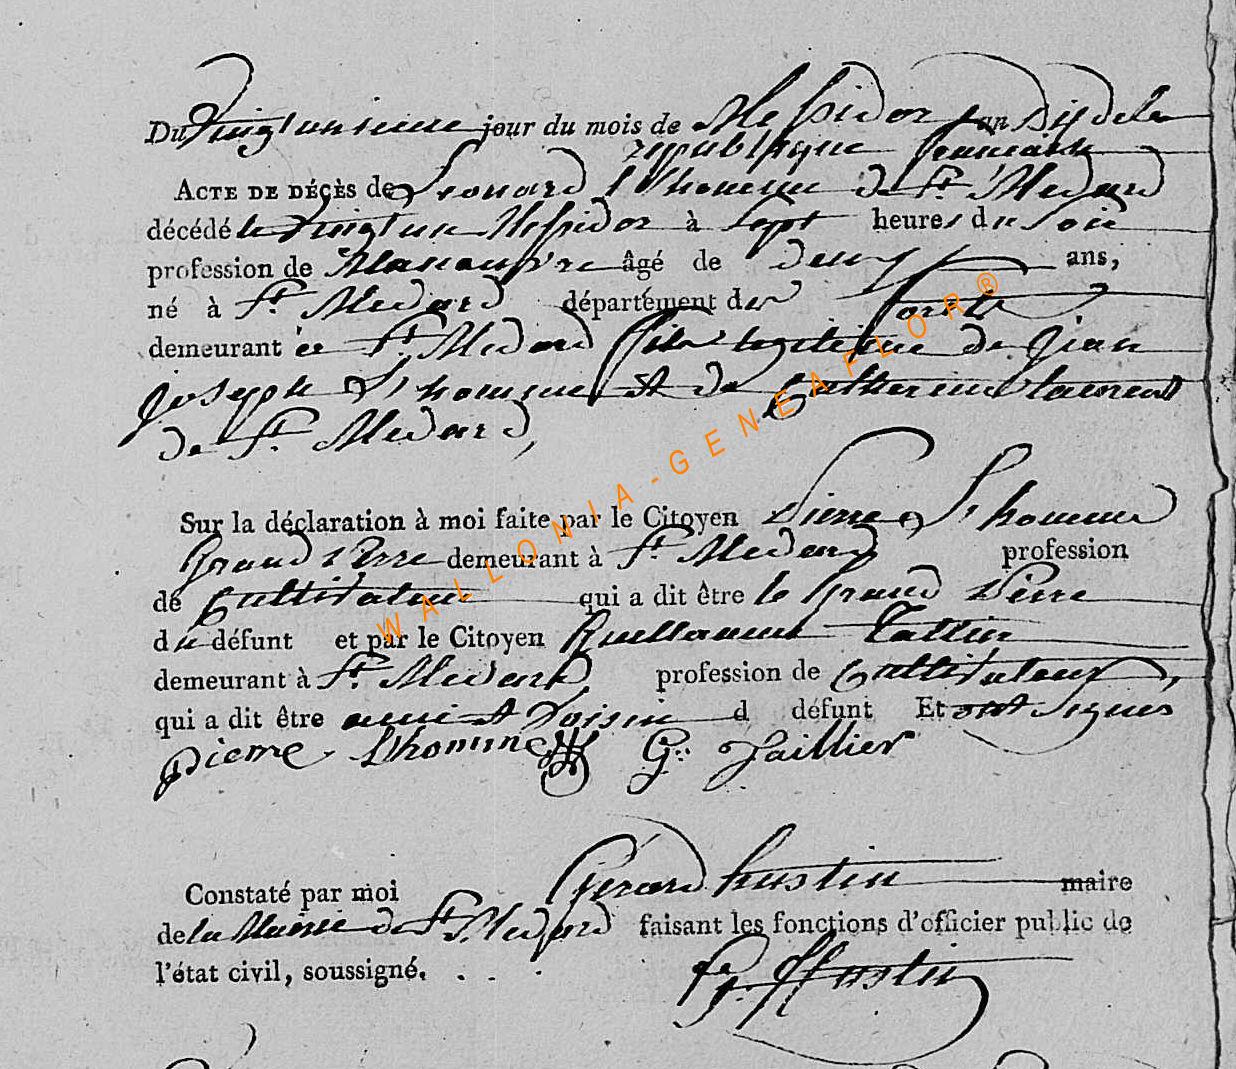 Du Vingt unieme jour du mois de Messidor an Dix de la
republique francaise
ACTE DE DÉCÈS de Leonard L'homme de St. Medard
décédé le Vingt un Messidor à Sept heures du Soir
profession de Manœuvre âgé de deux ans,
né à St. Medard département des forets
demeurant à St. Medard fils legitime de Jean
joseph L'homme et de Catherine laurent
de St. Medard,
Sur la déclaration à moi faite par le Citoyen Pierre L'homme
Grand Pere demeurant à St. Medard profession
de Cultivateur qui a dit être le Grand Pere
du défunt et par le Citoyen Guillaume Tallier
demeurant à St. Medard profession de Cultivateur,
qui a dit être ami et Voisin d défunt Et ont Signés
pierre Lhomme G: Jaillier
Constaté par moi Gérard hustin maire
de la Mairie de St. Medard faisant les fonctions d'officier public de
l'état civil, soussigné.
hustin
WALLONIA-GENEAFLOR®